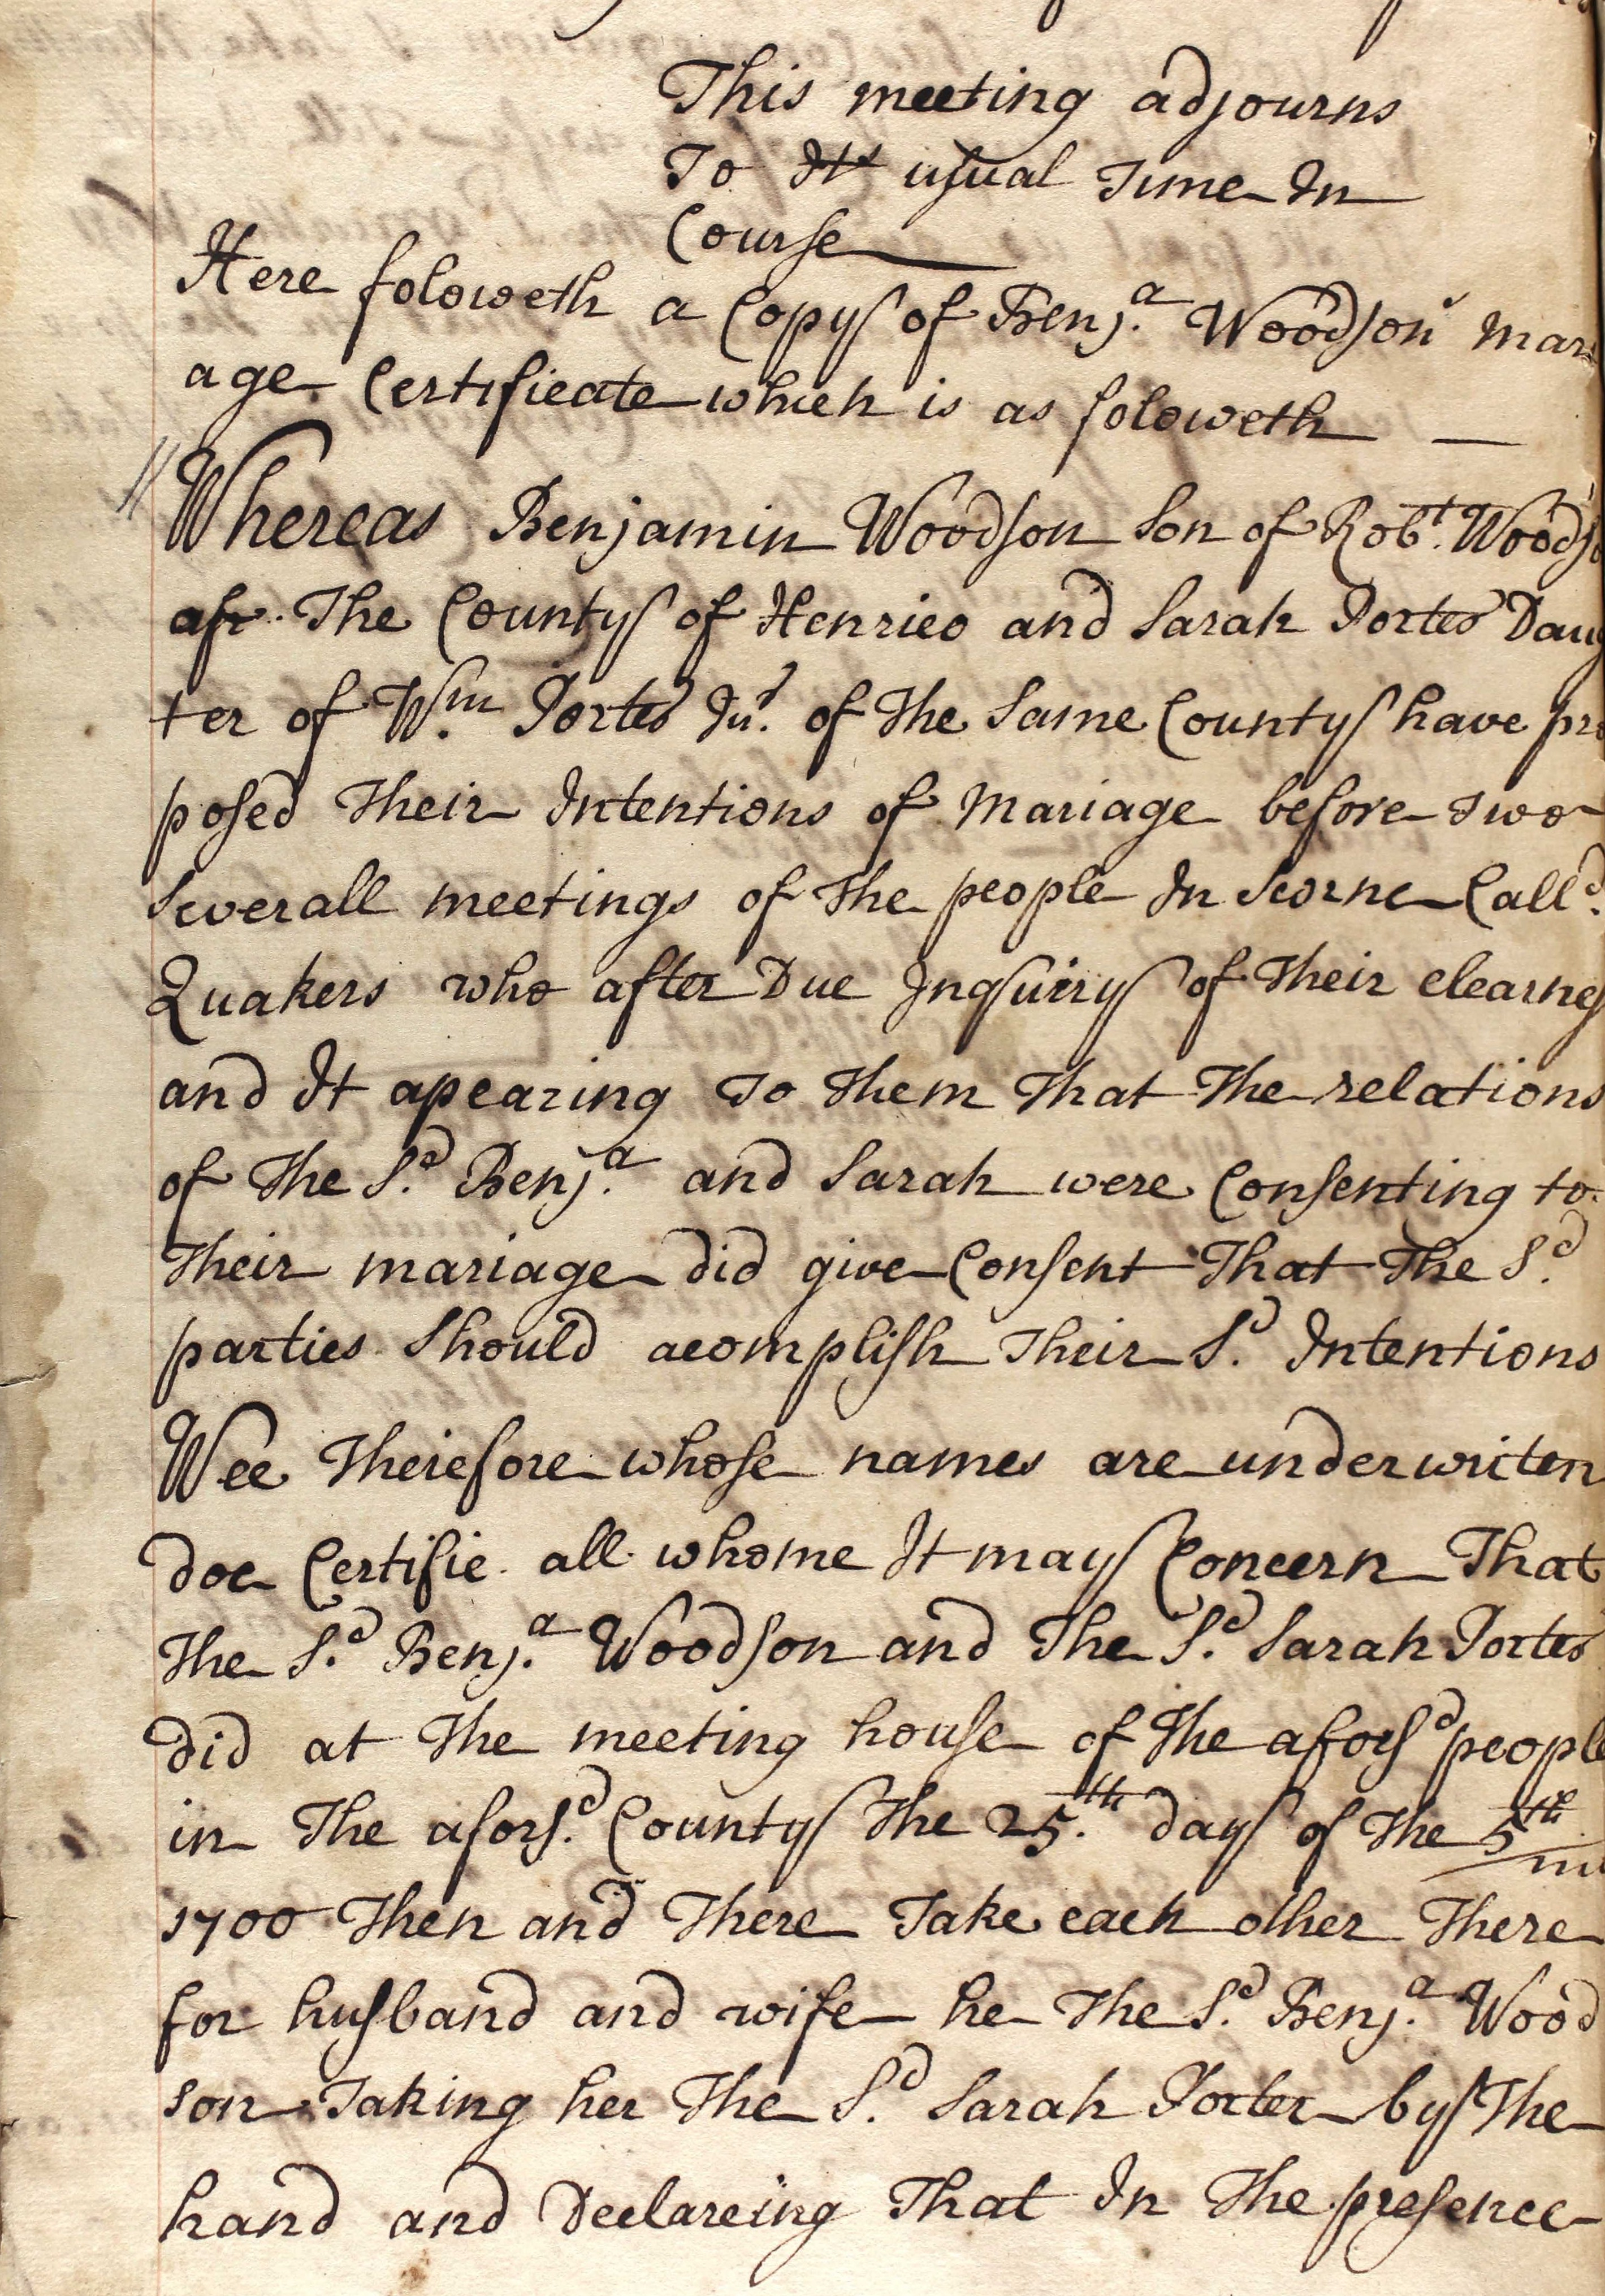 This meeting adjourns
To Its usual Time In
Course
Here foloweth a Copy of Benj.a Woodson mari
age Certificate which is as foloweth —
Whereas Benjamin Woodson Son of Robt. Woodso
of The County of Henrico and Sarah Porter Daug
ter of Wm. Porter Jur. of The Same County have pro
posed Their Intentions of Mariage before Two
Severall meetings of The people In Scorne Calld.
Quakers who after Due Inquiry of Their clearnes
and It apearing To Them That The relations
of The Sd. Benj.a and Sarah were Consenting to
Their mariage did give Consent That The Sd.
parties Should acomplish Their Sd. Intentions
Wee Therefore whose names are underwriten
doe Certifie all whome It may Concern That
The Sd. Benj.a Woodson and The Sd. Sarah Porter
did at The meeting house of The aforsd people
in The aforsd. County The 25.th day of The 5th mo
1700 Then and There Take each other There
for husband and wife he The Sd. Benj.a Wood
son Taking her The Sd. Sarah Porter by The
hand and Declareing That In The presence